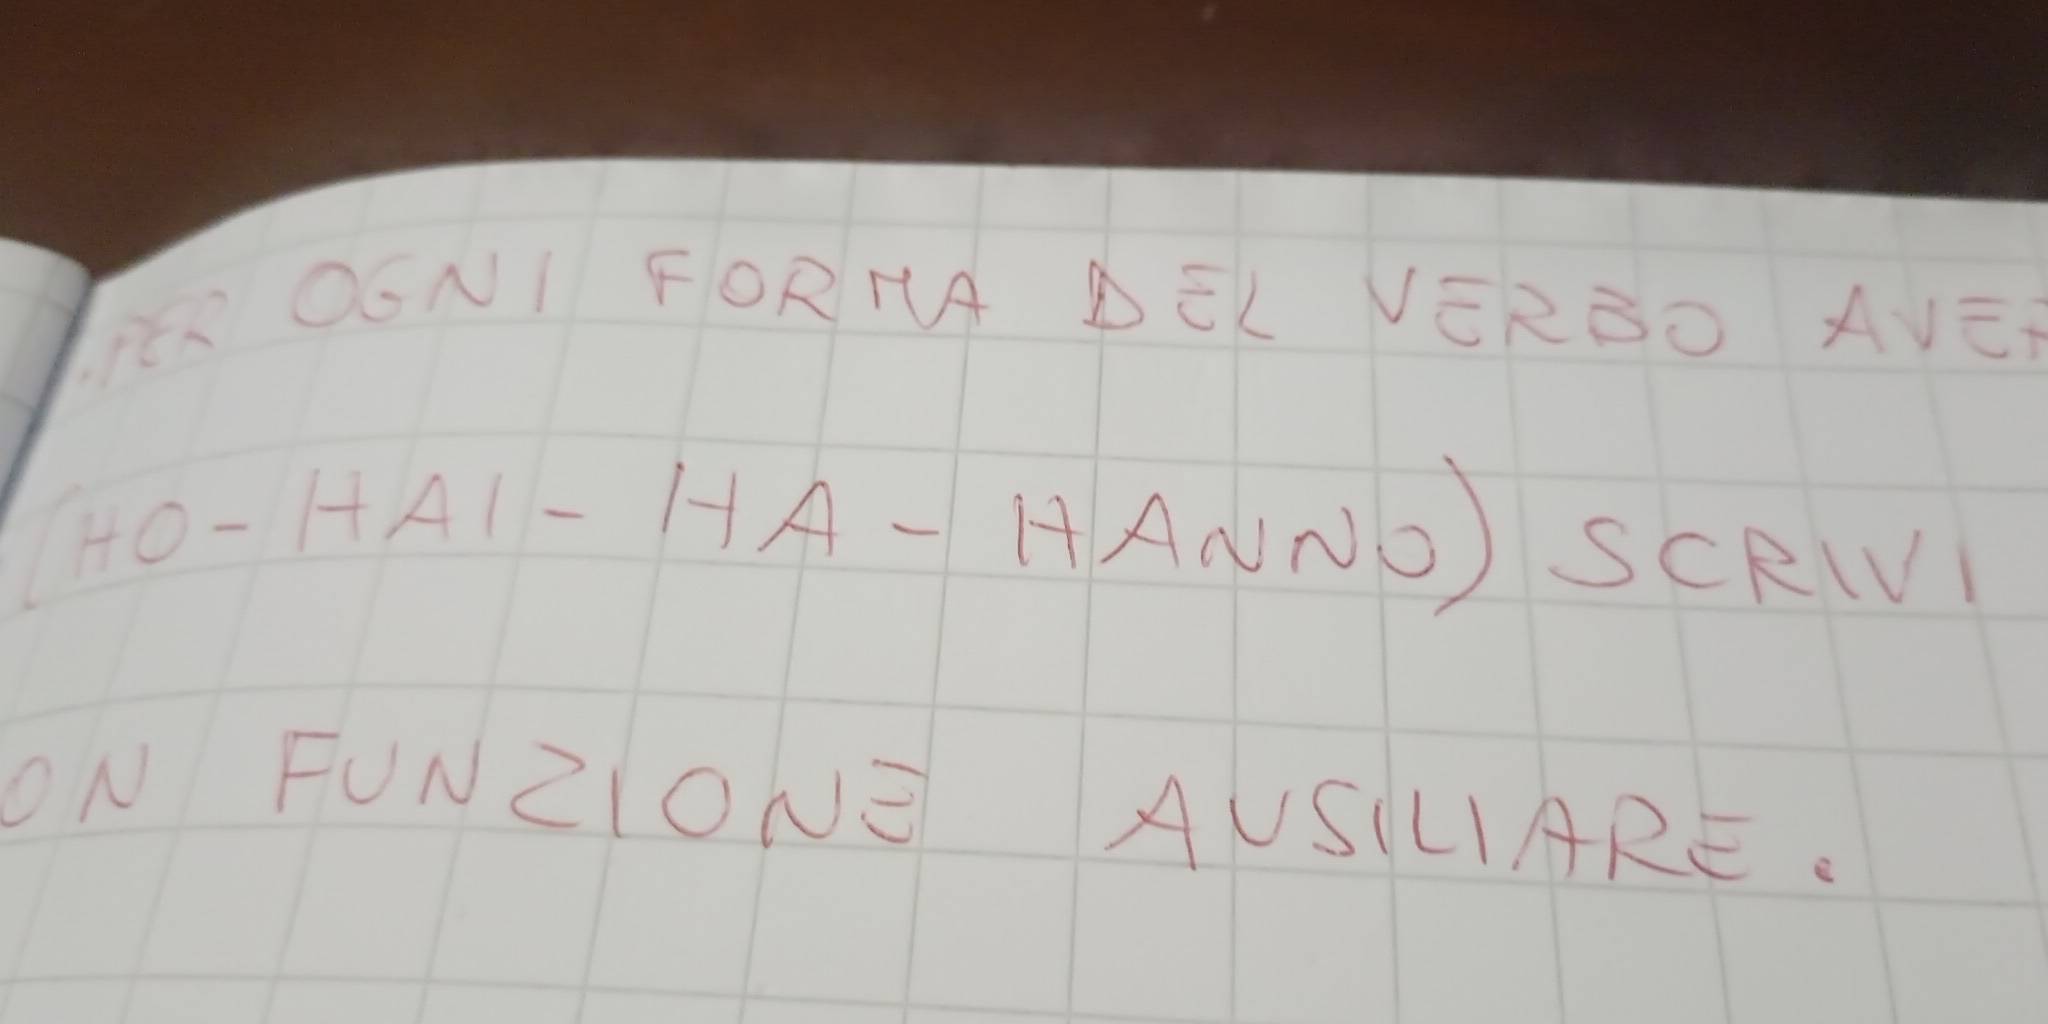 . PER OGNI FORMA DEL VERBO AVER
(HO - HAI - HA - HANNO) SCRIVI
ON FUNZIONE AUSILIARE.